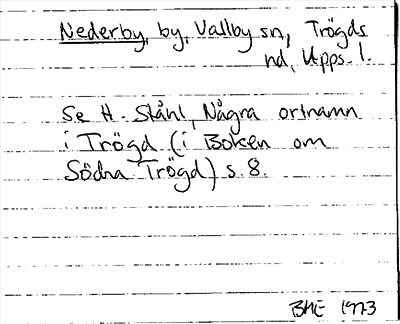 Nederby, by, Vallby sn, Trögds
hd, Upps. l.
Se H. Ståhl, Några ortnamn
i Trögd (i Boken om
Södra Trögd) s. 8.
BHE 1973